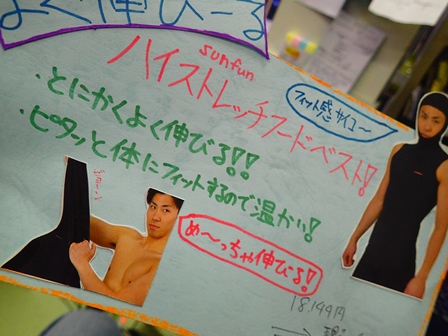 よく伸び〜る
sunfun
ハイストレッチフードベスト!
フィット感サイコー
・とにかくよく伸びる!!
・ピタッと体にフィットするので温かい!
め〜っちゃ伸びる!
18,144円